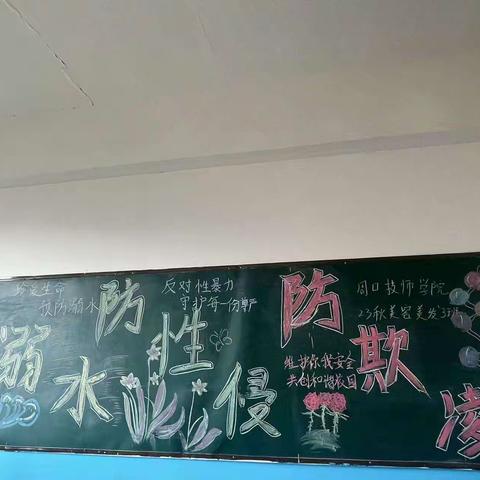 珍爱生命
预防溺水
溺水
防性侵
反对性暴力
守护每一份尊严
防欺凌
维护你我安全
共创和谐校园
周口技师学院
23秋美容美发3班